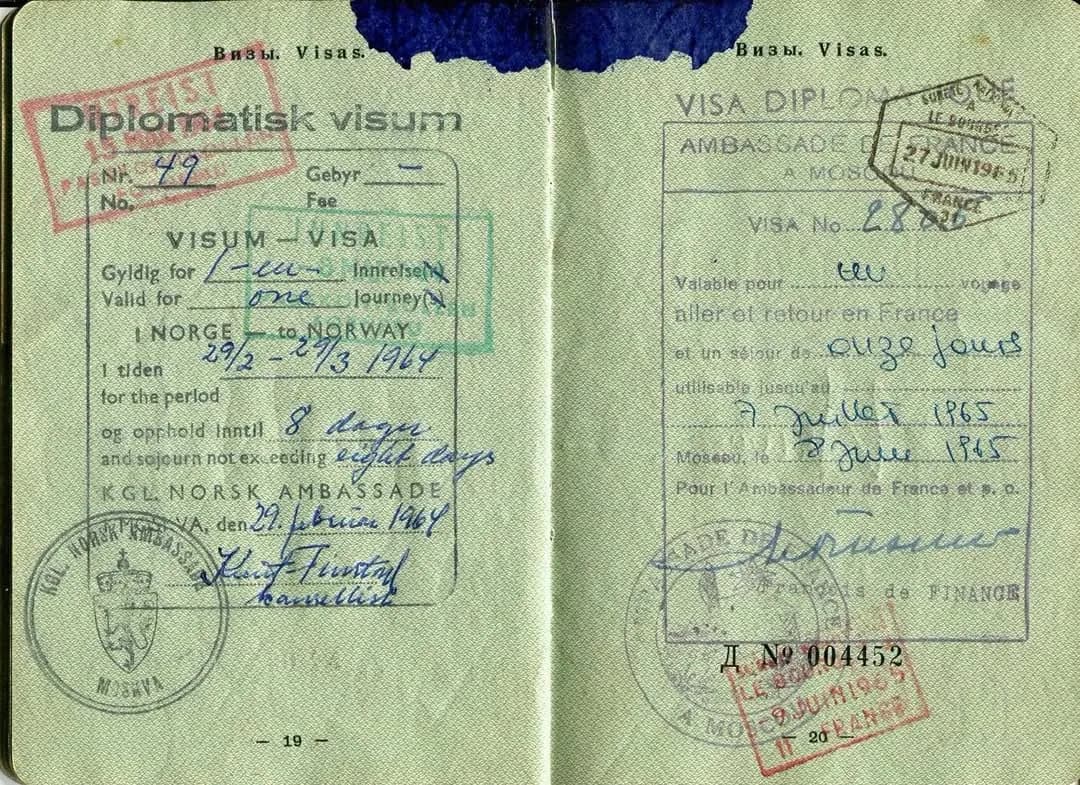 Визы. Visas.
Diplomatisk visum
Nr. 49 Gebyr —
No. Fee
VISUM — VISA
Gyldig for 1 - en - Innreise(r)
Valid for one Journey(s)
I NORGE — to NORWAY
I tiden 29/2 - 29/3 1964
for the period
og opphold inntil 8 dager
and sojourn not exceeding eight days
KGL. NORSK AMBASSADE
MOSKVA, den 29. februar 1964
KGL. NORSK AMBASSADE
MOSKVA
— 19 —
Визы. Visas.
VISA DIPLOMATIQUE
AMBASSADE DE FRANCE
A MOSCOU
LE BOURGET
27 JUIN 1965
FRANCE
VISA No 28
Valable pour un voyage
aller et retour en France
et un séjour de onze jours
utilisable jusqu'au
7 Juillet 1965
Moscou, le 8 Juin 1965
Pour l'Ambassadeur de France et p. o.
de FINANCE
Д № 004452
LE BOURGET
9 JUIN 1965
11 FRANCE
A MOSCOU
— 20 —